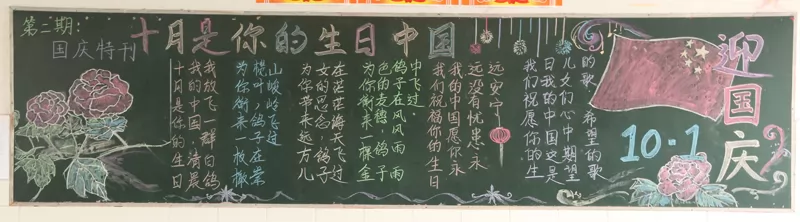 第二期:
国庆特刊
十月是你的生日中国
十月是你的生日
我的中国,清晨
我放飞一群白鸽
为你衔来一枚橄
榄叶,鸽子在崇
山峻岭飞过
为你带来远方儿
女的思念,鸽子
在茫茫海天飞过
为你衔来一棵金
色的麦穗,鸽子
鸽子在风风雨雨
中飞过.
我们祝福你的生日
我的中国愿你永
远没有忧患永
远安宁
我们祝愿你的生
日我的中国这是
儿女们心中期望
的歌,希望的歌
10·1
迎国庆